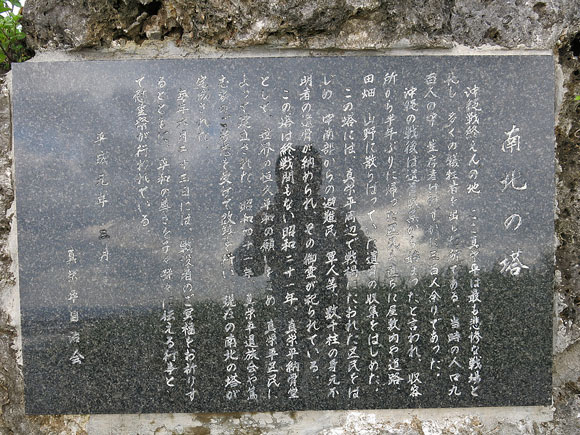 南北の塔
沖縄戦終えんの地、ここ真栄平は最も悲惨な戦場と
化し、多くの犠牲者を出した所である。当時の人口九
百人の中、生存者は わずか三百人余りであった。
沖縄の戦後は遺骨収集から始まったと言われ、収容
所から半年ぶりに帰った区民は、直ちに屋敷内や道路、
田畑、山野に散らばっていた遺骨の収集をはじめた。
この塔には、真栄平周辺で戦場にたおれた区民をは
じめ、中南部からの避難民、軍人等、数千柱の身元不
明者の遺骨が納められ、その御霊が祀られている。
この塔は終戦間もない昭和二十一年、真栄平納骨堂
として、世界の恒久平和の願いをこめ、真栄平区民に
よって建立された。昭和四十一年、真栄平遺族会や篤
志
改修を行い、現在の南北の塔が
建立された
毎年六月二十三日には、戦没者のご冥福をお祈りす
るとともに、平和の尊さを
に伝える行事とし
て慰霊祭が行われている。
平成元年 三月
真栄平自治会